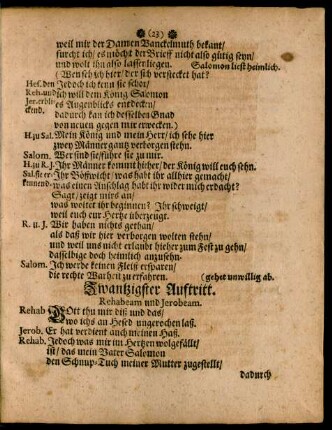 (23)
weil mir der Damen Wanckelmuth bekant/
furcht ich/ es möcht der Brieff nicht also gütig seyn/
und wolt ihn also lassen liegen. Salomon liest heimlich.
(Wen seh ich hier/ der sich verstecket hat?
Hes. den Jedoch ich kenn sie schon/
Reh. und ich will dem König Salomon
Jer. erbli- es Augenblicks entdecken/
ckend. dadurch kan ich desselben Gnad
von neuen gegen mir erwecken.)
H. zu Sal. Mein König und mein Herr/ ich sehe hier
zwey Männer gantz verborgen stehn.
Salom. Wer sind sie/ führe sie zu mir.
H. zu R. J. Ihr Männer kommt hieher/ der König will euch sehn.
Sal. sie er- Ihr Bößwicht/ was habt ihr allhier gemacht/
kennend- was einen Anschlag habt ihr wider mich erdacht?
Sagt/ zeigt mirs an/
was woltet ihr beginnen? Ihr schweigt/
weil euch eur Hertze überzeugt.
R. u. J. Wir haben nichts gethan/
als daß wir hier verborgen wolten stehn/
und weil uns nicht erlaubt hieher zum Fest zu gehn/
dasselbige doch heimlich anzusehn.
Salom. Ich werde keinen Fleiß ersparen/
die rechte Warheit zu erfahren. (gehet unwillig ab.
Zwantzigster Auftritt.
Rehabeam und Jerobeam.
Rehab GOtt thu mir diß und das/
wo ichs an Hesed ungerochen laß.
Jerob. Er hat verdient auch meinen Haß.
Rehab. Jedoch was mir im Hertzen wolgefällt/
ist/ das mein Vater Salomon
den Schnup-Tuch meiner Mutter zugestellt/
dadurch